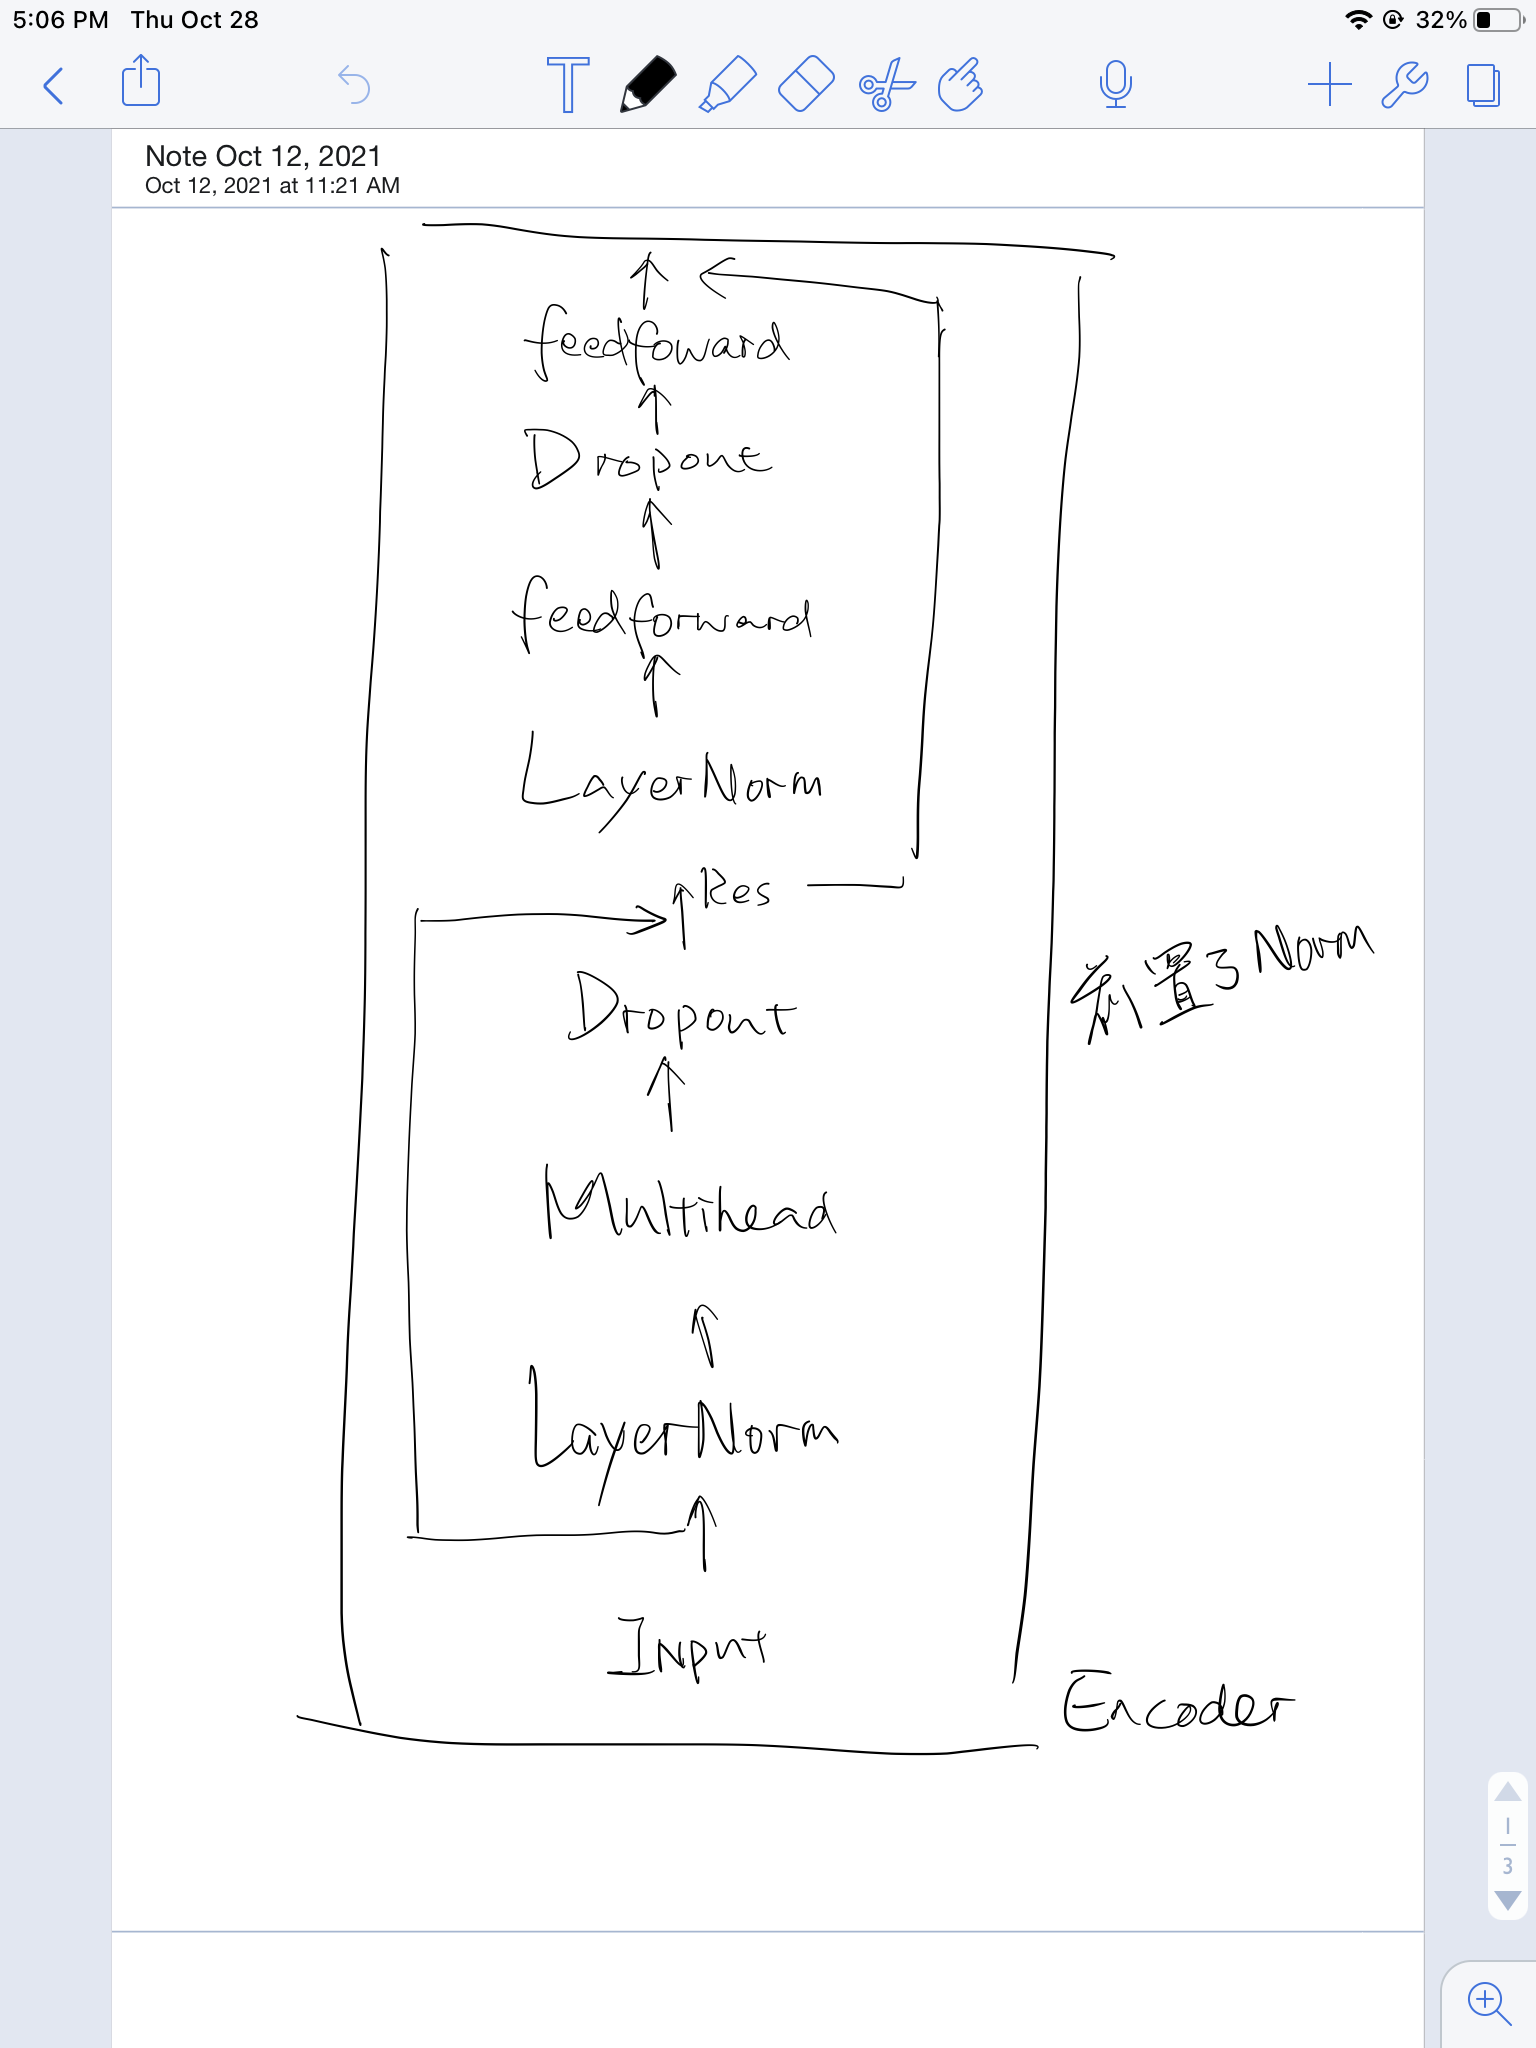 5:06 PM Thu Oct 28
32%
Note Oct 12, 2021
Oct 12, 2021 at 11:21 AM
feedfoward
Dropout
feedforward
LayerNorm
Res
Dropout
前置了 Norm
Multihead
LayerNorm
Input
Encoder
1
3